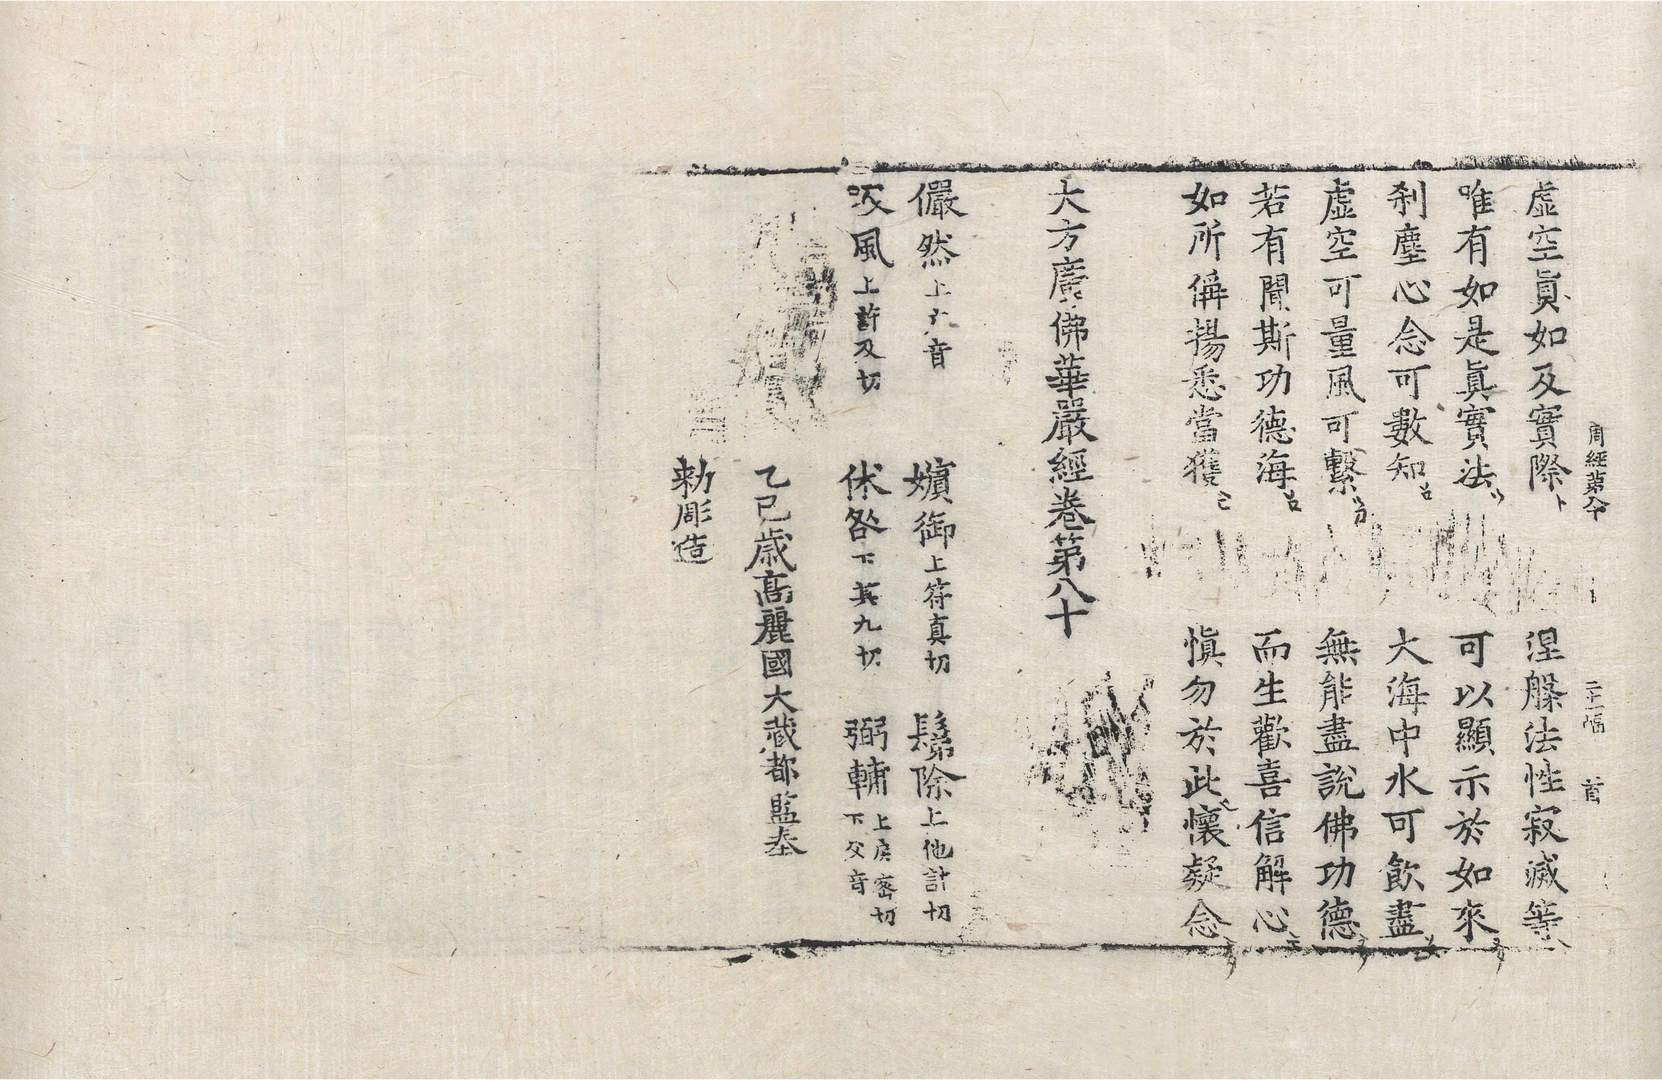 周經第八十 二十二幅 首
虛空眞如及實際 涅槃法性寂滅等
唯有如是眞實法 可以顯示於如來
刹塵心念可數知 大海中水可飮盡
虛空可量風可繫 無能盡說佛功德
若有聞斯功德海 而生歡喜信解心
如所稱揚悉當獲 愼勿於此懷疑念
大方廣佛華嚴經卷第八十
儼然 上 音 嬪御 上符真切 髢除 上他計切
吸風 上許及切 休咎 下其九切 弼輔 上房密切 下父音
乙巳歲高麗國大藏都監奉
勅彫造